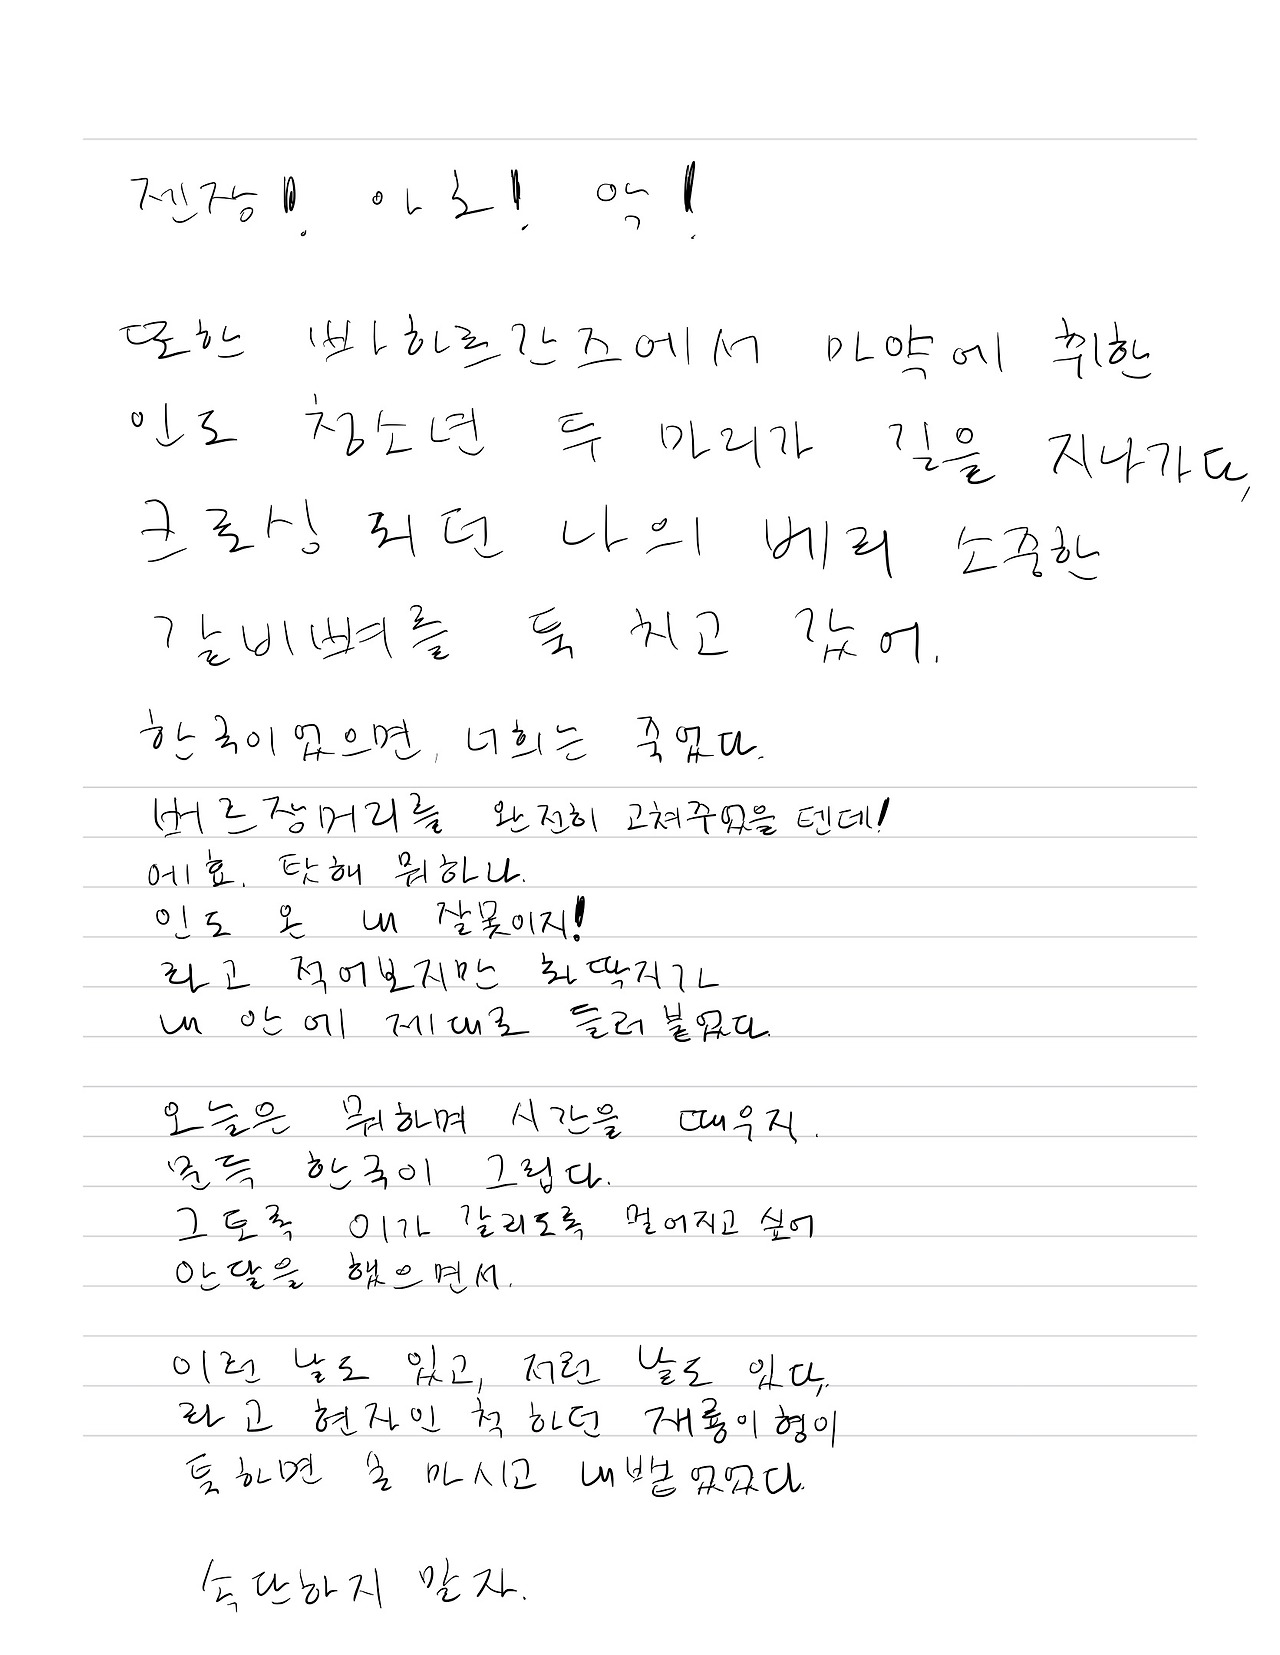 젠장! 아흐! 악!
또한 빠하르간즈에서 마약에 취한
인도 청소년 두 마리가 길을 지나가다,
크로싱 되던 나의 베리 소중한
갈비뼈를 툭 치고 갔어.
한국이었으면, 너희는 죽었다.
버르장머리를 완전히 고쳐주었을 텐데!
에효. 탓해 뭐하나.
인도 온 내 잘못이지!
라고 적어보지만 화딱지가
내 안에 제대로 들러붙었다.
오늘은 뭐하며 시간을 때우지.
문득 한국이 그립다.
그토록 이가 갈리도록 멀어지고 싶어
안달을 했으면서.
이런 날도 있고, 저런 날도 있다,
라고 현자인 척 하던 재룡이형이
툭하면 술 마시고 내뱉었었다.
속단하지 말자.